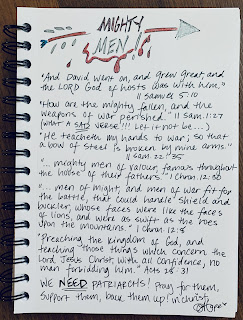 MIGHTY
MEN!
"And David went on, and grew great, and
the LORD God of hosts was with him."
II Samuel 5:10
"How are the mighty fallen, and the
weapons of war perished." II Sam. 1:27
(WHAT A SAD VERSE!!! Let it not be...)
"He teacheth my hands to war; so that
a bow of steel is broken by mine arms."
II Sam 22:35
"... mighty men of valour, famous throughout
the house of their fathers." I Chron. 12:30
"... men of might, and men of war fit for
the battle, that could handle shield and
buckler, whose faces were like the faces
of lions, and were as swift as the roes
upon the mountains." I Chron 12:8
"Preaching the kingdom of God, and
teaching those things which concern the
Lord Jesus Christ, with all confidence, no
man forbidding him." Acts 28:31
WE NEED PATRIARCHS! Pray for them,
Support them, back them up! in christ,